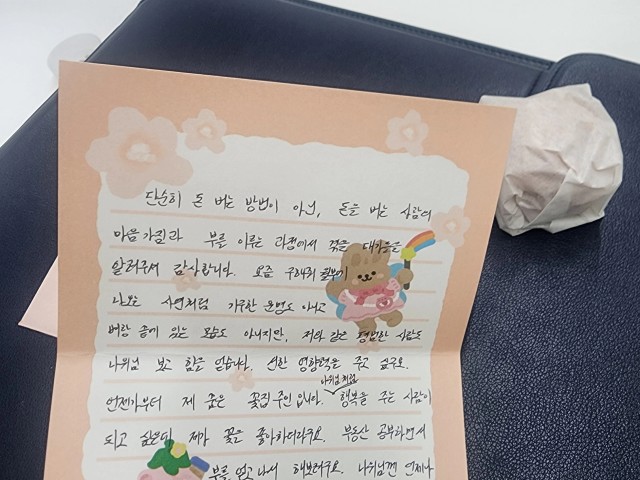 단순히 돈 버는 방법이 아닌, 돈을 버는 사람의
마음가짐과 부를 이루는 과정에서 겪을 대가들을
알려주셔 감사합니다. 요즘
나오는 사연처럼 가혹한 운명도 아니고
벼랑 끝에 있는 모습도 아니지만, 저와 같은 평범한 사람도
나위님 보고 힘을 얻습니다. 선한 영향력을 주고 싶구요.
나위님처럼
언젠가부터 제 꿈은 꽃집 주인 입니다. 행복을 주는 사람이
되고 싶은데 제가 꽃을 좋아하더라구요. 부동산 공부하면서
부를 얻고 나서 해보려구요. 나위님껜 언제나